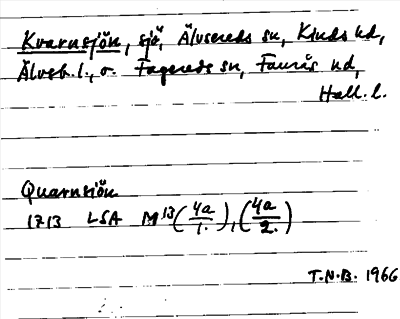 Kvarnsjön, sjö, Älvsereds sn, Kinds hd,
Älvsb. l., o. Fagereds sn, Faurås hd,
Hall. l.
Quarnsiön
1713 LSA M13 (4a/1.), (4a/2.)
T.N.B. 1966